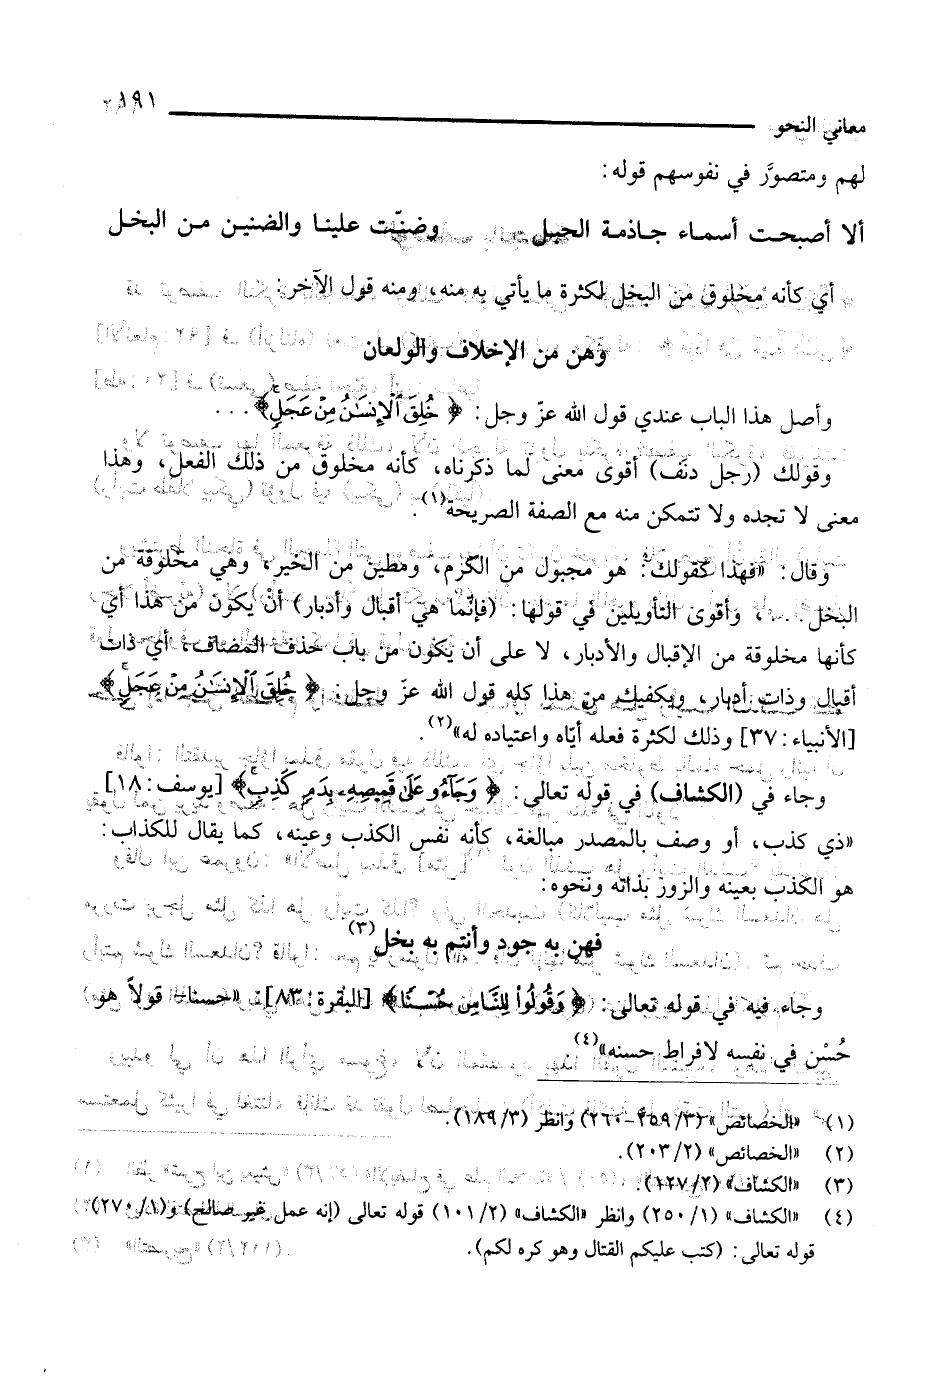 ١٩١
معاني النحو
لهم ومتصوَّر في نفوسهم قوله:
ألا أصبحت أسماء جاذمة الحبل وضنّت علينا والضنين من البخل
أي كأنه مخلوق من البخل لكثرة ما يأتي به منه، ومنه قول الآخر:
وهن من الإخلاف والولعان
وأصل هذا الباب عندي قول الله عزّ وجل: ﴿خُلِقَ ٱلْإِنسَٰنُ مِنْ عَجَلٍ﴾ ...
وقولك (رجل دنف) أقوى معنى لما ذكرناه، كأنه مخلوق من ذلك الفعل، وهذا
معنى لا تجده ولا تتمكن منه مع الصفة الصريحة(١).
وقال: «فهذا كقولك: هو مجبول من الكرم، ومطين من الخير، وهي مخلوقة من
البخل. . . ، وأقوى التأويلين في قولها: (فإنّما هي أقبال وأدبار) أنْ يكون من هذا أي
كأنها مخلوقة من الإقبال والأدبار، لا على أن يكون من باب حذف المضاف، أي ذات
أقبال وذات أدبار، ويكفيك من هذا كله قول الله عزّ وجل: ﴿خُلِقَ ٱلْإِنسَٰنُ مِنْ عَجَلٍ﴾
[الأنبياء: ٣٧] وذلك لكثرة فعله أيّاه واعتياده له»(٢).
وجاء في (الكشاف) في قوله تعالى: ﴿وَجَآءُو عَلَىٰ قَمِيصِهِۦ بِدَمٍ كَذِبٍ﴾ [يوسف: ١٨]
«ذي كذب، أو وصف بالمصدر مبالغة، كأنه نفس الكذب وعينه، كما يقال للكذاب:
هو الكذب بعينه والزور بذاته ونحوه:
فهن به جود وأنتم به بخل(٣)
وجاء فيه في قوله تعالى: ﴿وَقُولُوا۟ لِلنَّاسِ حُسْنًا﴾ [البقرة: ٨٣]: «حسنا، قولاً هو
حُسْن في نفسه لافراط حسنه»(٤)
(١) «الخصائص» (٣/ ٢٥٩-٢٦٠) وانظر (٣/ ١٨٩).
(٢) «الخصائص» (٢/ ٢٠٣).
(٣) «الكشاف» (٢/ ١٢٧).
(٤) «الكشاف» (١/ ٢٥٠) وانظر «الكشاف» (٢/ ١٠١) قوله تعالى (إنه عمل غير صالح) و(١/ ٢٧٠)
قوله تعالى: (كتب عليكم القتال وهو كره لكم).